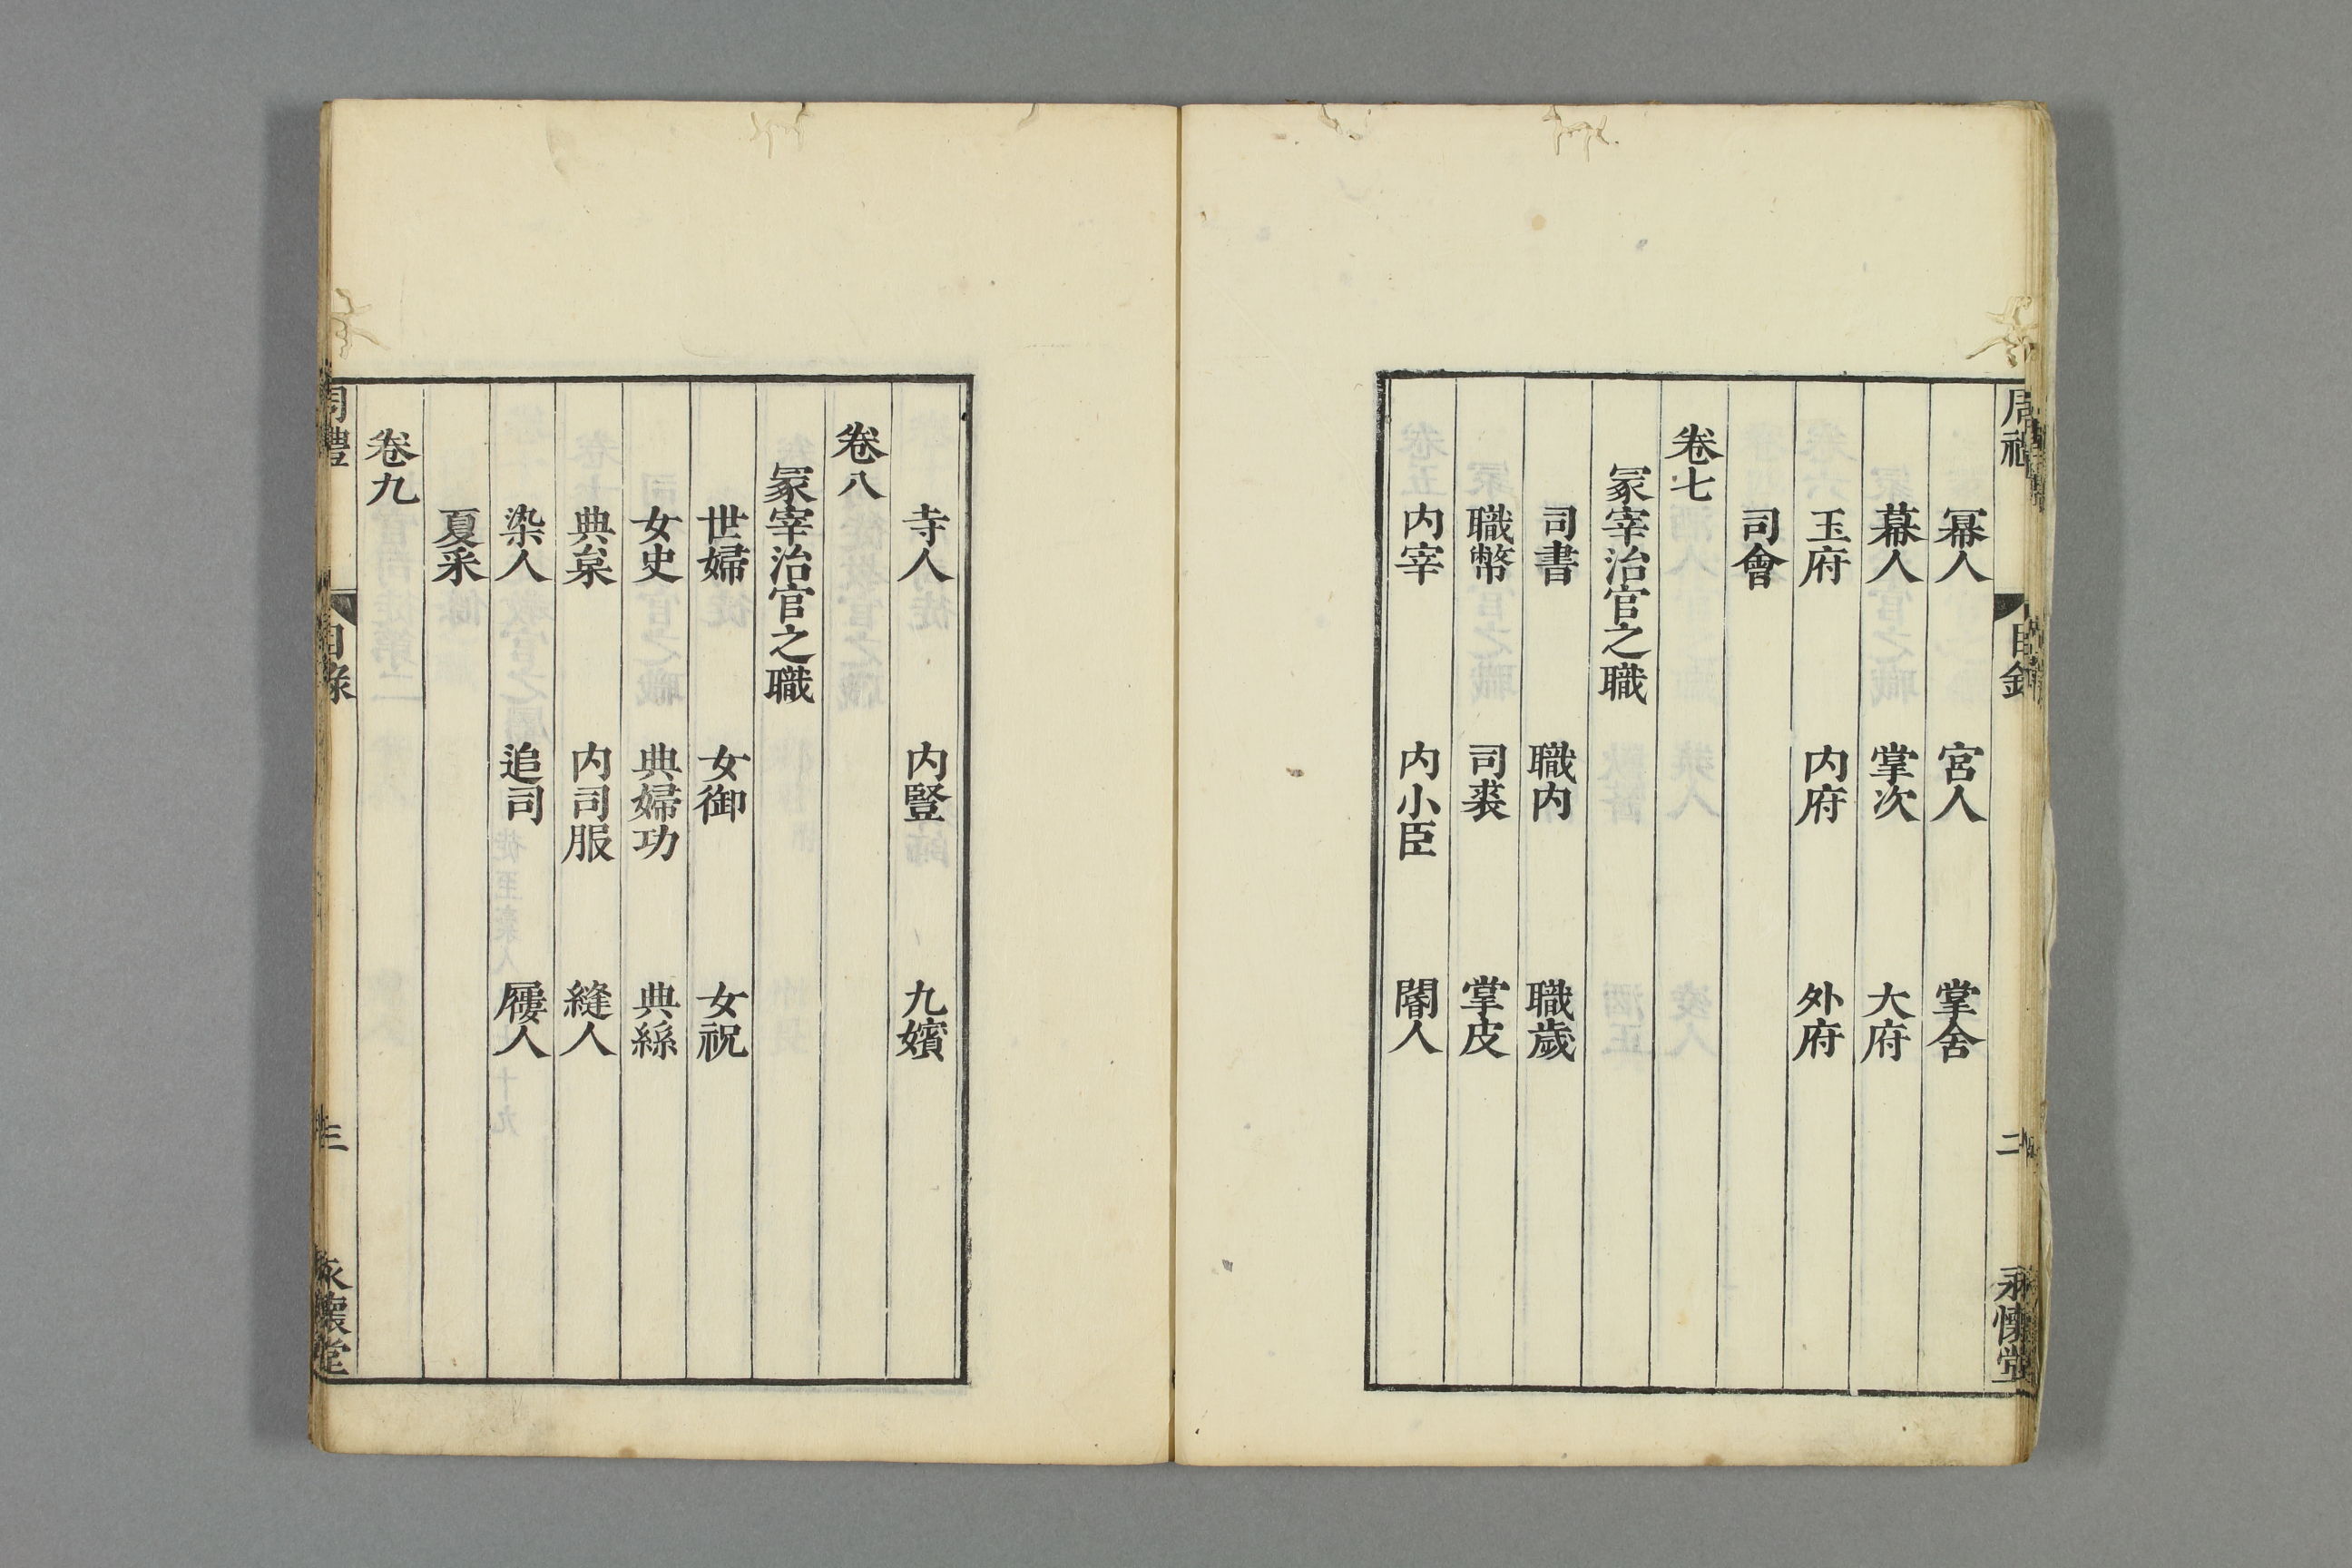 冪人　宮人　掌舍
幕人　掌次　大府
玉府　内府　外府
司會
卷七
冢宰治官之職
司書　職内　職歲
職幣　司裘　掌皮
内宰　内小臣　閽人
寺人　内豎　九嬪
卷八
冢宰治官之職
世婦　女御　女祝
女史　典婦功　典絲
典枲　内司服　縫人
染人　追司　屨人
夏采
卷九
周禮　目錄　三　永懷堂